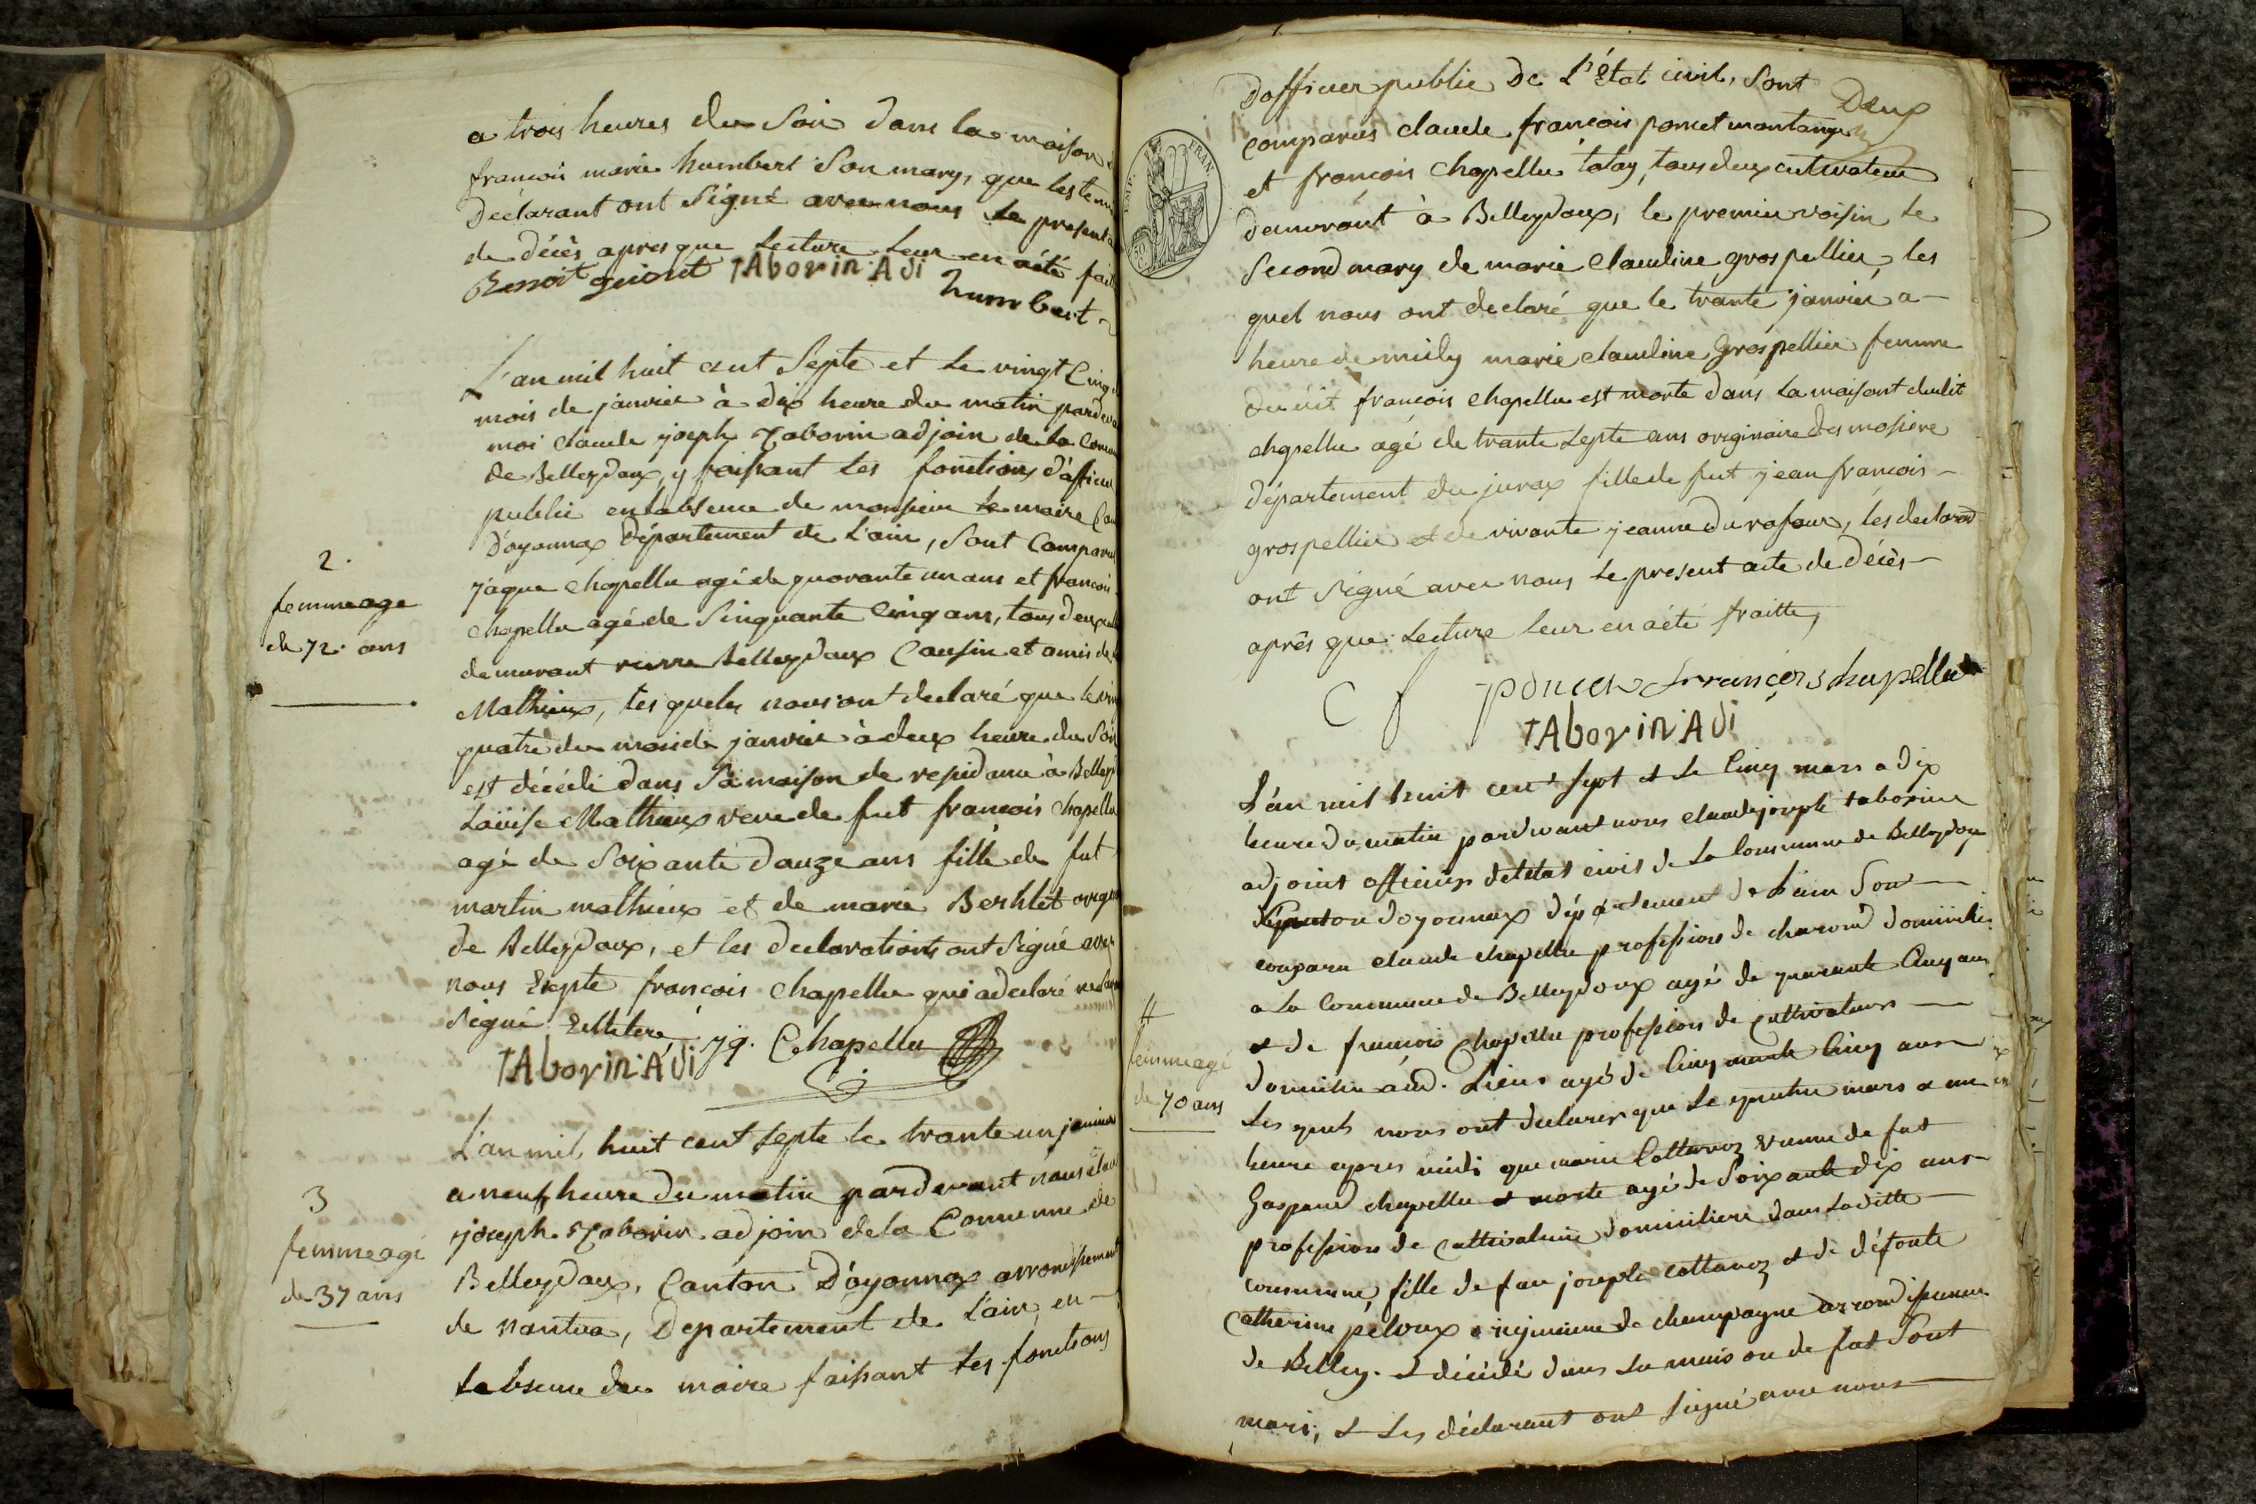 a trois heures du Soir dans la maison
francois marie humbert Son mary, que les temo
Déclarant ont Signé avec nous le present
de décès apres que Lecture Leur en aété fai
Benoit guiont TAborin Adj humbert
L'an mil huit cent Septe et le vingt Cinq
mois de janvier à dix heure du matin pardeva
moi claude joseph Taborin adjoin de la Comm
de Belleydoux, y faissant les fonctions d'afficie
public en labsence de monsieur le maire Can
D'oyonnax Département de L'ain, Sont Comparu
2.
femme age
de 72 ans
jaque Chapellu agé de quarante un ans et francois
Chapellu agé de Sinquante Cinq ans, tous deux
demeurant Belleydoux Cousin et amis de
Mathieux, les quels nous ont declaré que le vin
quatre du mois de janvier à deux heure du Soir
est décédé dans Sa maison de residance à Belley
Louise Mathieux veve de fut francois Chapellu
agé de Soixante Douze ans fille de fut
martin mathieux et de marie Berthlet origin
de Belleydoux, et les declarations ont Signé avec
nous Exepte francois Chapellu qui a declaré ne
Signé TAborin Adj jq. Chapellu
3
femme agé
de 37 ans
L'an mil huit cent Septe le trante un janvier
a neuf heure du matin pardevant nous claud
joseph Taborin adjoin de la Commune de
Belleydoux, Canton D'oyonnax arrondissement
de nantua, Departement de L'ain, en
labsence du maire faissant les fonctions
Dofficier public De L'état civil, Sont Deux
comparus claude francois poncet montange
et francois Chapellu talay, tous deux cutivateur
demeurant à Belleydoux, le premier voisin le
Second mary de marie claudine grospellier, les
quel nous ont declaré que le trante janvier a
heure de midy marie claudine Grospellier femme
Dudit francois Chapellu est morte dans la maisont dudit
chapellu agé de trante Septe ans originaire des mosiere
Département du jurax fille de fut jean francois
grospellier et de vivante jeanne Durafour, les declarant
ont Signé avec nous le present acte de décès
aprês que Lecture leur en aété fraitte,
C f poncet francois chapellu
TAborin Adj
L'an mil huit cent Sept et le Cinq mars a dix
heure du matin pardevant nous claudejoseph taborin
adjoint officiers detetat civis de la Commune de Belleydoux
Canton doyonnax département de Lain Son
comparu claude chapellu profession de charond domicilie
a la Commune de Belleydoux agé de quarante Cinq ans
4
femme agé
de 70 ans
et de francois Chapellu profession de cultivateurs
domicilie aud. Lieux agé de Cinquante Cinq ans
Les quels nous ont declarer que le quatre mars a une
heure apres midi que marie Cottavoz veuve de fut
Gaspard chapellu et morte agé de Soixante dix ans
profession de cultivatrice domiciliere dans Laditte
commune, fille de fau joseph cottavoz et de défonte
Catherine peloux originaire de champagne arrondissement
de Belley. et décédé dans La maison de fut Sont
mari, et Les déclarant ont Signé avec nous